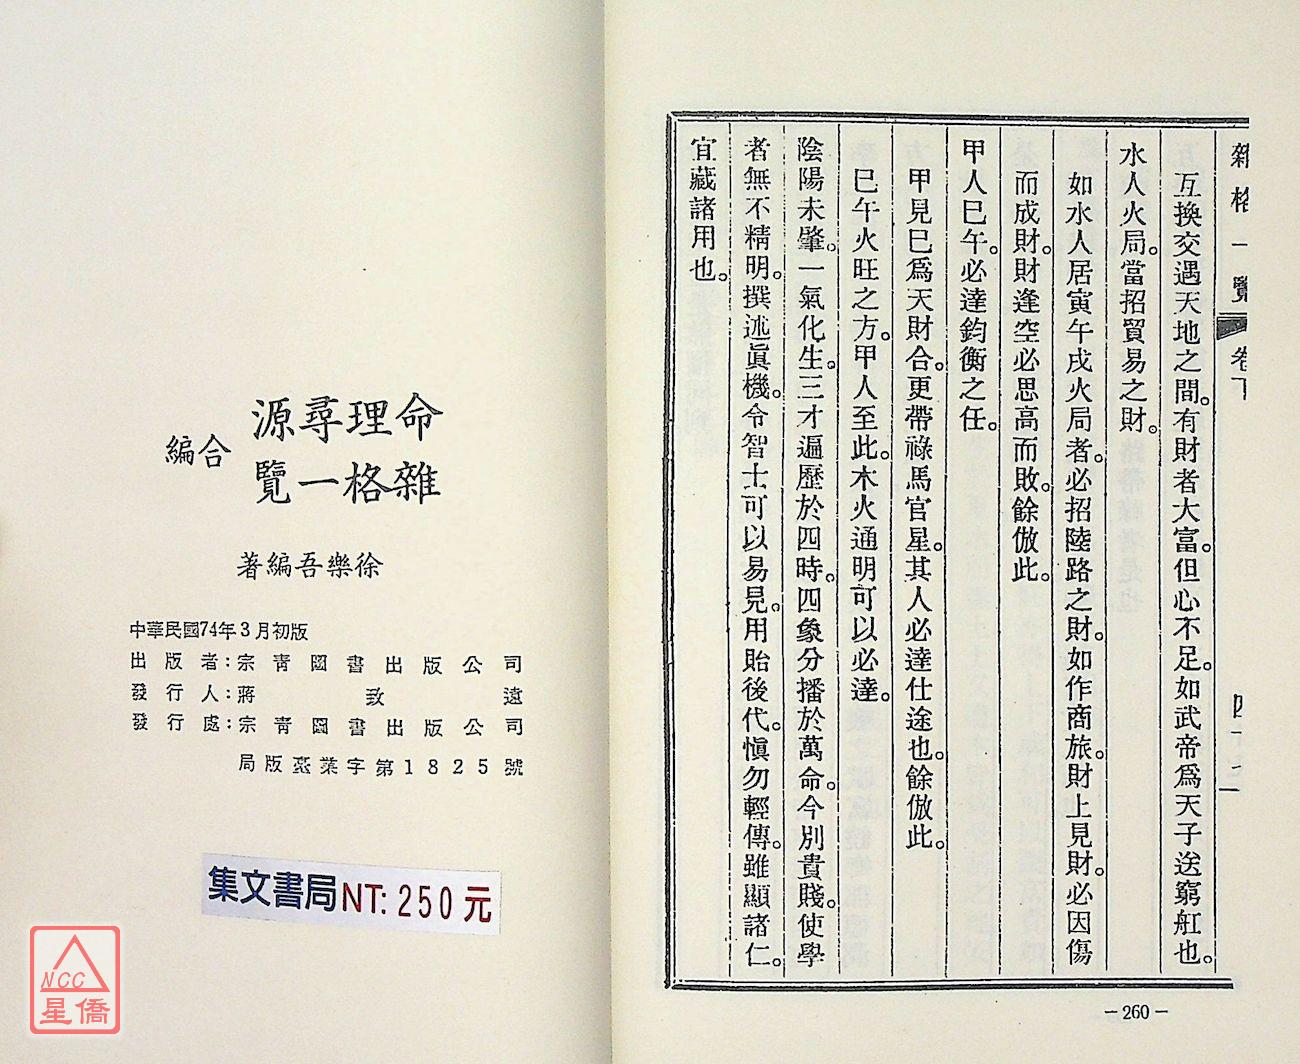 雜格一覽 卷下 四十二
互換交遇天地之間。有財者大富。但心不足。如武帝爲天子送窮舡也。
水人火局。當招貿易之財。
如水人居寅午戌火局者。必招陸路之財。如作商旅。財上見財。必因傷
而成財。財逢空必思高而敗。餘倣此。
甲人巳午。必達鈞衡之任。
甲見巳爲天財合。更帶祿馬官星。其人必達仕途也。餘倣此。
巳午火旺之方。甲人至此。木火通明可以必達。
陰陽未肇。一氣化生。三才遍歷於四時。四象分播於萬命。今別貴賤。使學
者無不精明。撰述眞機。令智士可以易見。用貽後代。愼勿輕傳。雖顯諸仁。
宜藏諸用也。
－260－
源尋理命
覽一格雜
編合
著編吾樂徐
中華民國74年3月初版
出版者：宗靑圖書出版公司
發行人：蔣致遠
發行處：宗靑圖書出版公司
局版臺業字第1825號
集文書局NT：250元
NCC
星僑